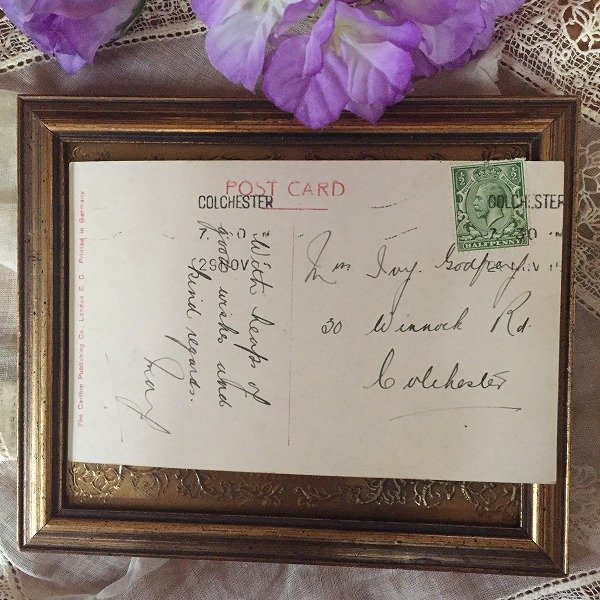 POST CARD
COLCHESTER
COLCHESTER
7. 30
29 NOV
HALFPENNY
With heaps of
good wishes and
kind regards.
May
Ivy. Godfrey
30 Winnock Rd.
Colchester
The Carlton Publishing Co., London E. C. Printed in Germany